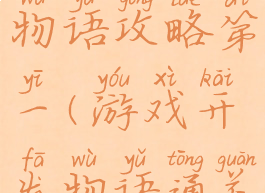 wù yǔ gōng lüè dì
物语攻略第
yī yóu xì kāi
一(游戏开
fā wù yǔ tōng guān
发物语通关